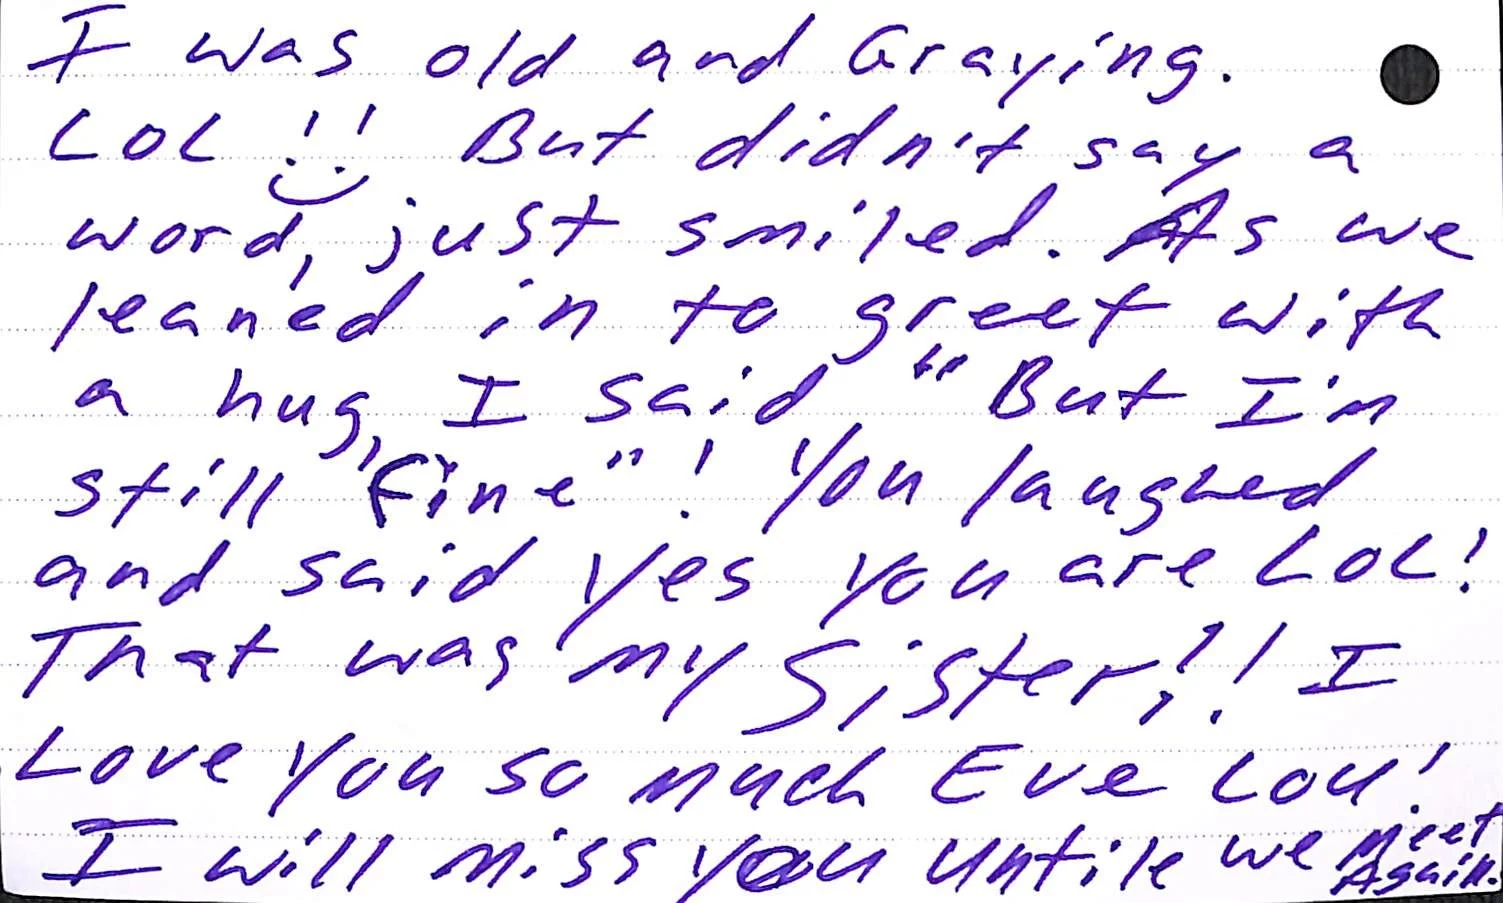 I was old and Graying.
LOL!! But didn't say a
word, just smiled. As we
leaned in to greet with
a hug, I said "But I'm
still fine"! You laughed
and said Yes You are LOL!
That was my Sister!! I
Love You so much Eve Lou!
I will miss you untile we meet
Again.